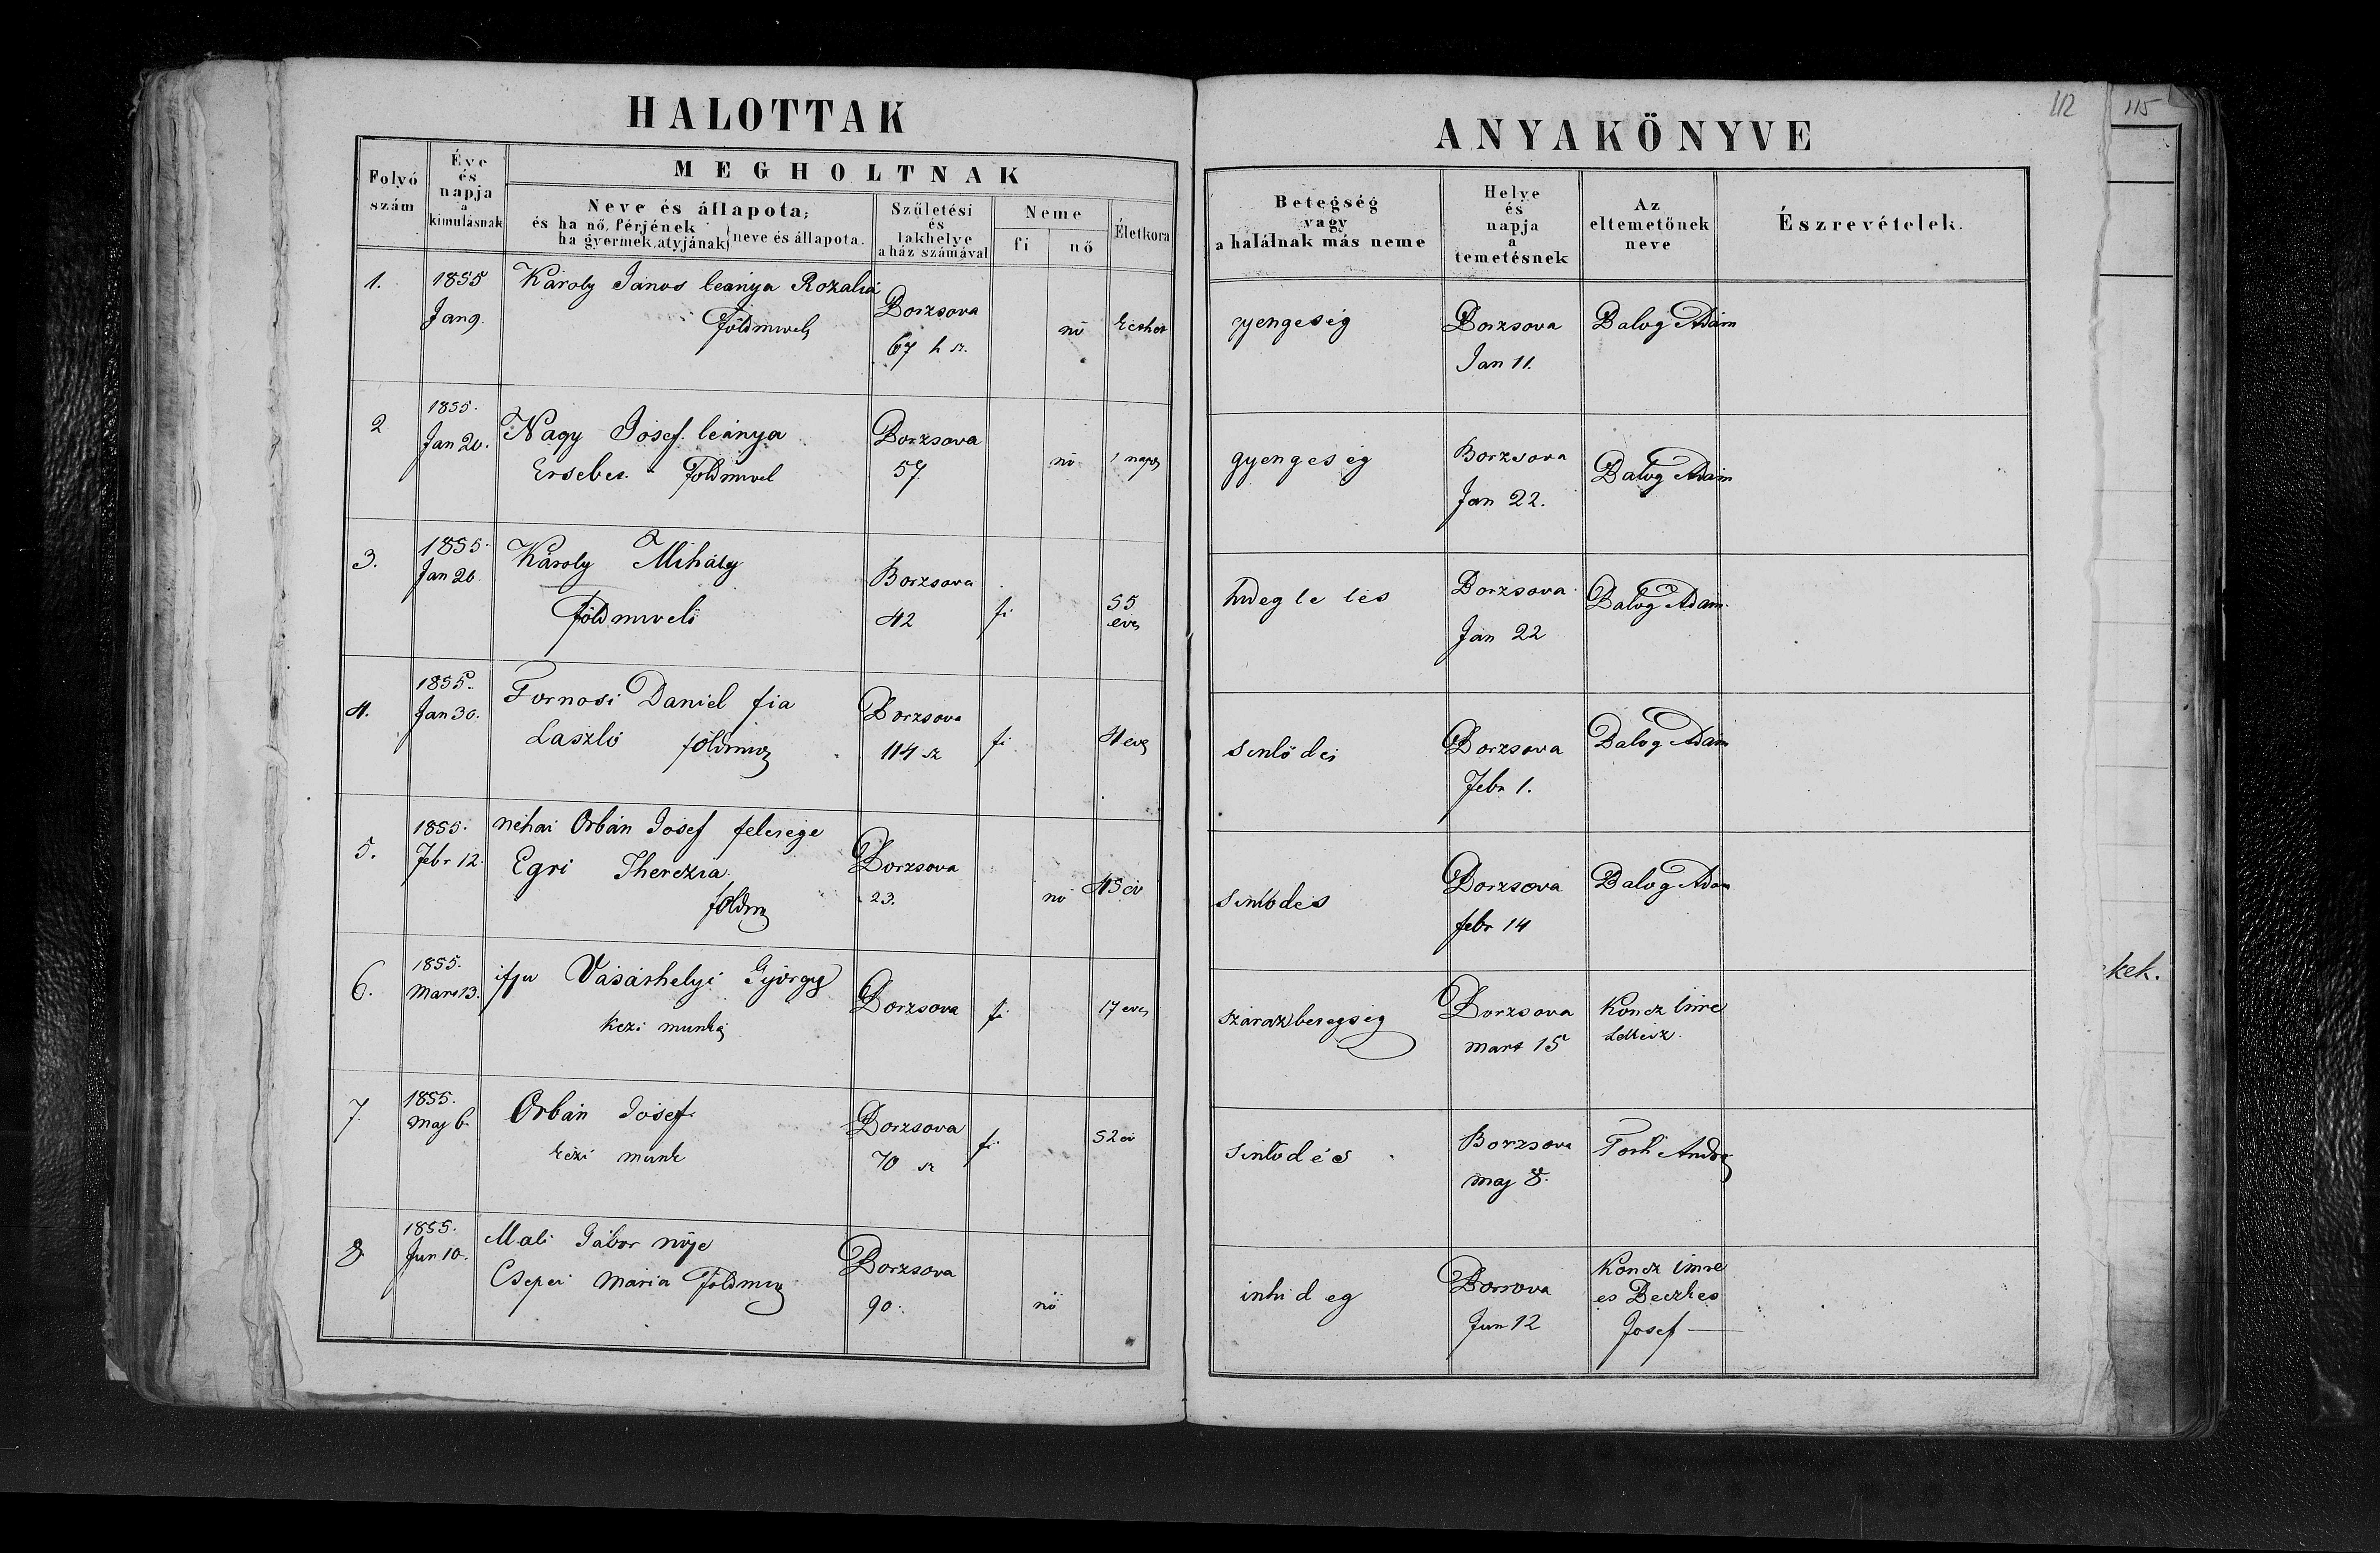 HALOTTAK
ANYAKÖNYVE
112
115
Folyó szám
Éve és napja a kimulásnak
MEGHOLTNAK
Neve és állapota;
és ha nő, férjének
ha gyermek, atyjának} neve és állapota.
Születési és lakhelye a ház számával
Neme
fi
nő
Életkora
Betegség vagy a halálnak más neme
Helye és napja a temetésnek
Az eltemetőnek neve
Észrevételek.
1.
1855
Jan 9.
Károly János leánya Rozalia
Földmivelő
Borzsova
67 h sz.
nő
gyengeség
Borzsova
Jan 11.
Balog Adám
2
1855.
Jan 20.
Nagy Josef leánya
Ersebet Földmivel
Borzsova
57
nő
1 napos
gyengeség
Borzsova
Jan 22.
Balog Adám
3.
1855.
Jan 20.
Károly Mihály
Földmivelő
Borzsova
42
fi
55
eves
hideg le lés
Borzsova
Jan 22
Balog Adám.
4.
1855.
Jan 30.
Tornosi Daniel fia
Laszló földmiv
Borzsova
114 sz
fi
4 eves
sinlődés
Borzsova
Febr 1.
Balog Adám
5.
1855.
Febr 12.
néhai Orbán Josef felesége
Egri Therezia
földm
Borzsova
23.
nő
45 év
sinlődés
Borzsova
febr 14
Balog Adam
6.
1855.
Mart 13.
ifju Vásárhelyi György
kezi munkás
Borzsova
fi
17 eves
szárazbetegség
Borzsova
Mart 15
Koncz Imre
7.
1855.
Maj 6.
Orbán Josef
kézi munk
Borzsova
70 sz
fi
52 év
sinlődés
Borzsova
Maj 8.
8
1855.
Jun 10.
Mali Gábor nője
Csepei Mária Földmiv
Borzsova
90.
nő
Borsova
Jun 12
Koncz Imre
es Beczkes
Josef —
kek.